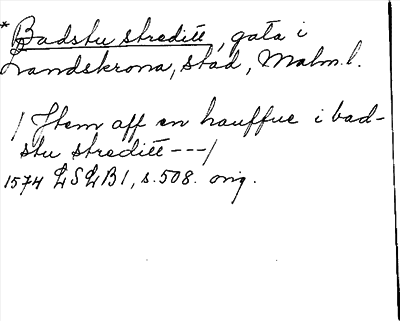 * Badstu strediit, gata i
Landskrona, stad, Malm.l.
/ Jtem aff en hauffue i bad-
stu strediit ---/
1574 LSLB1, s.508. orig.